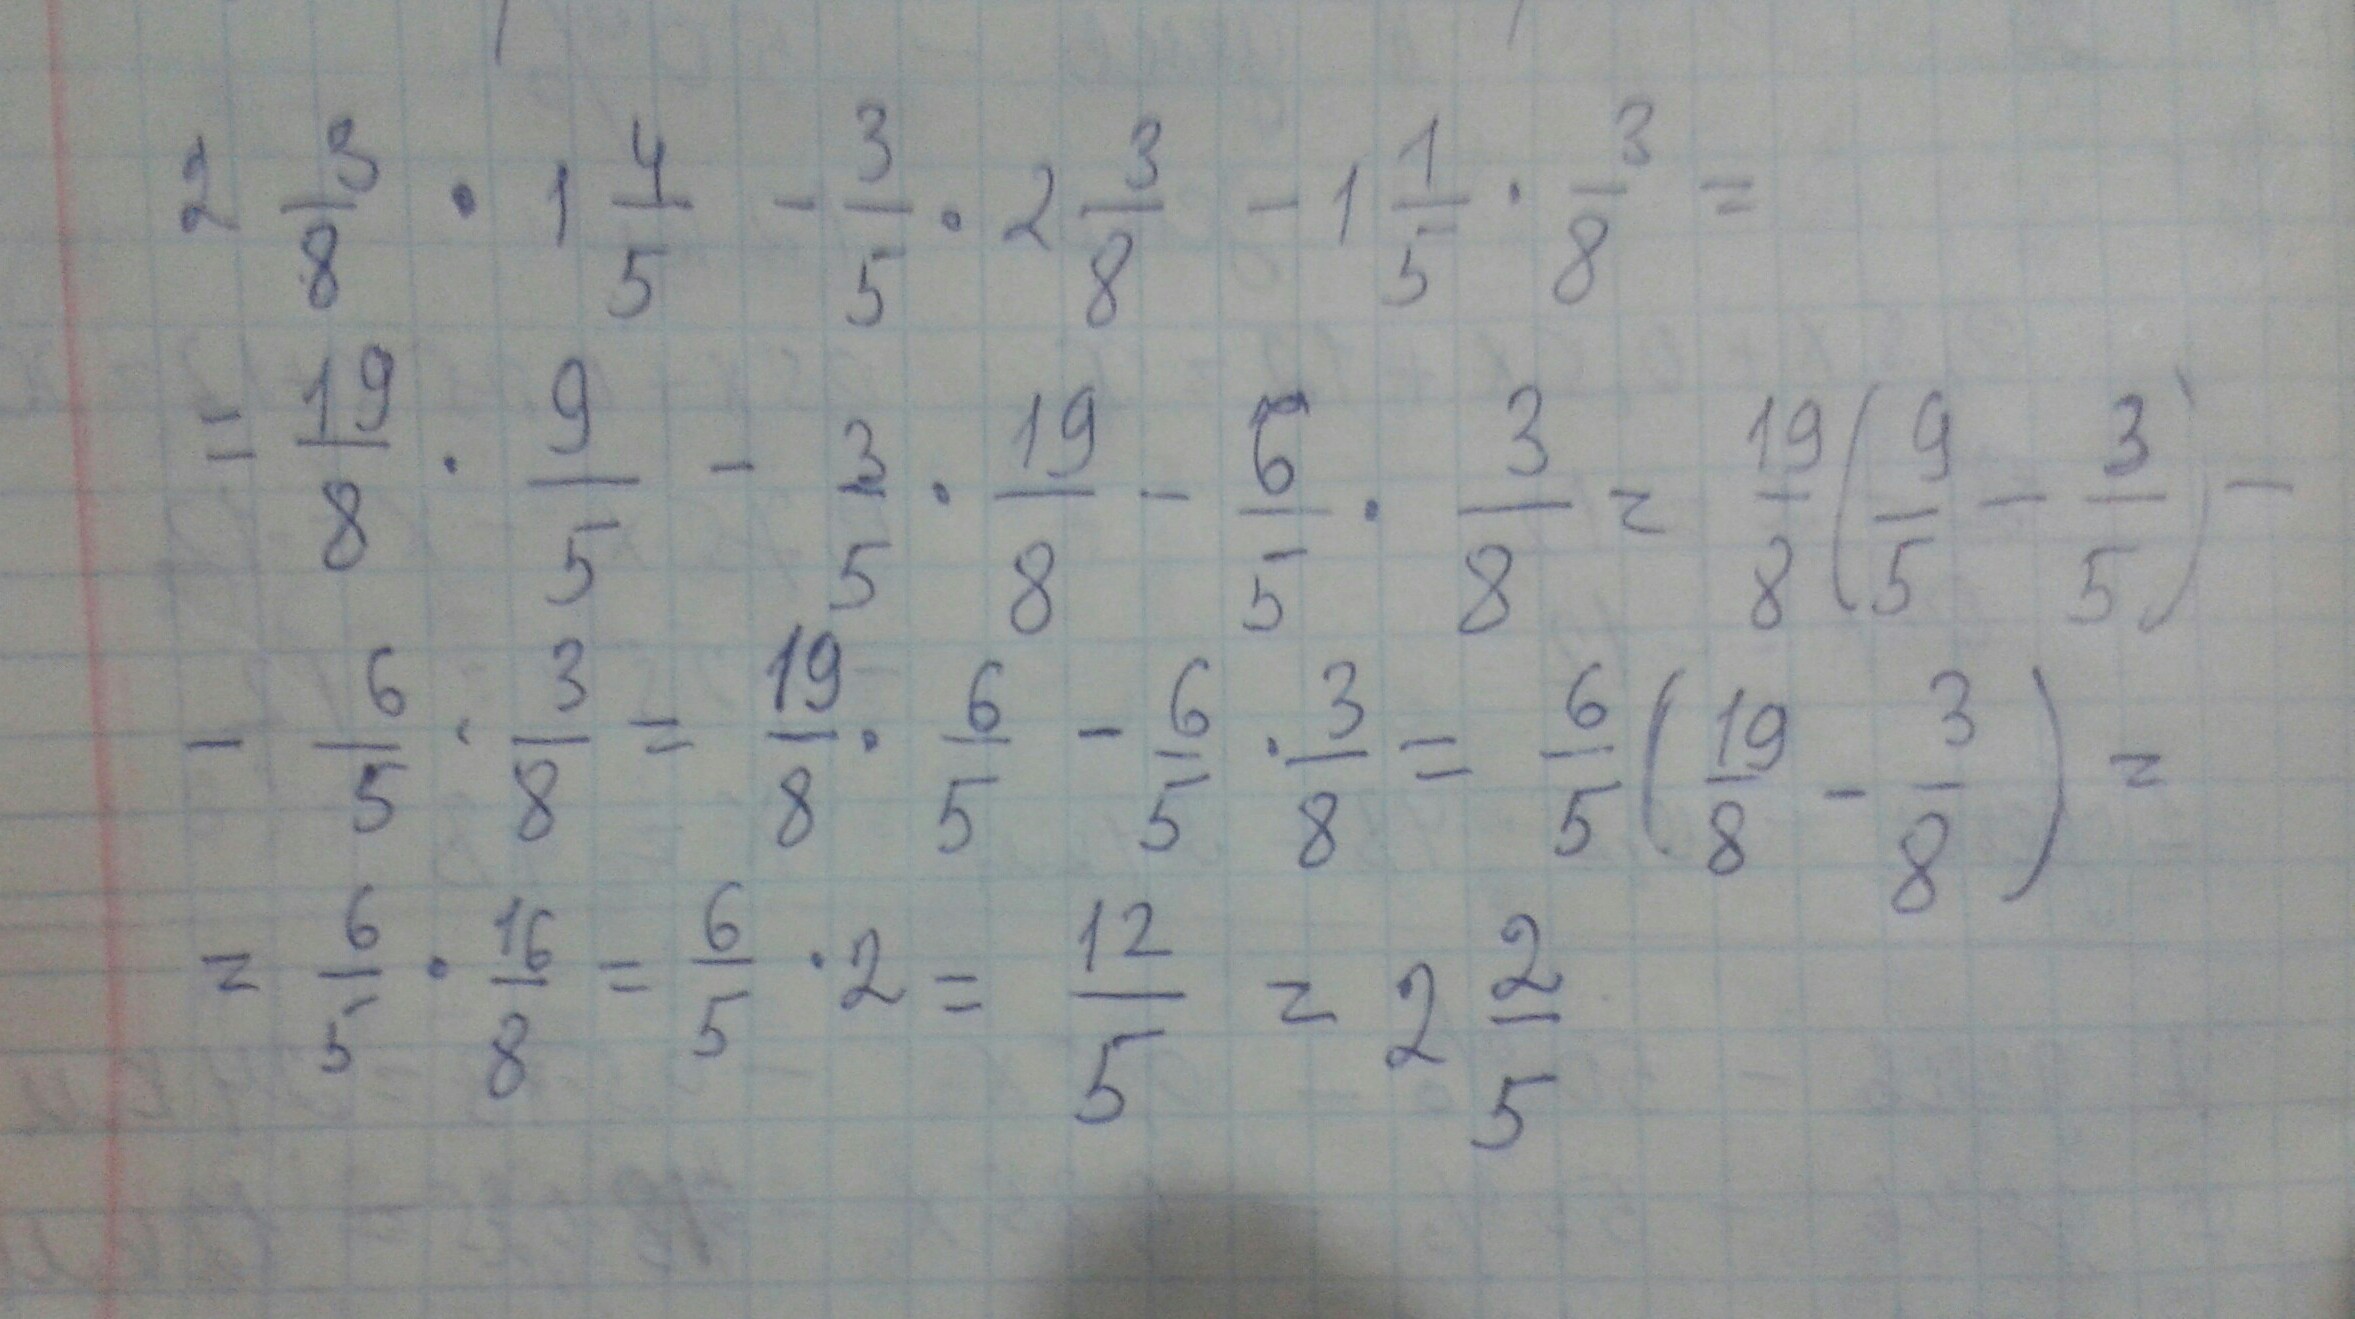 2 3/8 · 1 4/5 - 3/5 · 2 3/8 - 1 1/5 · 3/8 =
= 19/8 · 9/5 - 3/5 · 19/8 - 6/5 · 3/8 = 19/8 (9/5 - 3/5) -
- 6/5 · 3/8 = 19/8 · 6/5 - 6/5 · 3/8 = 6/5 (19/8 - 3/8) =
= 6/5 · 16/8 = 6/5 · 2 = 12/5 = 2 2/5